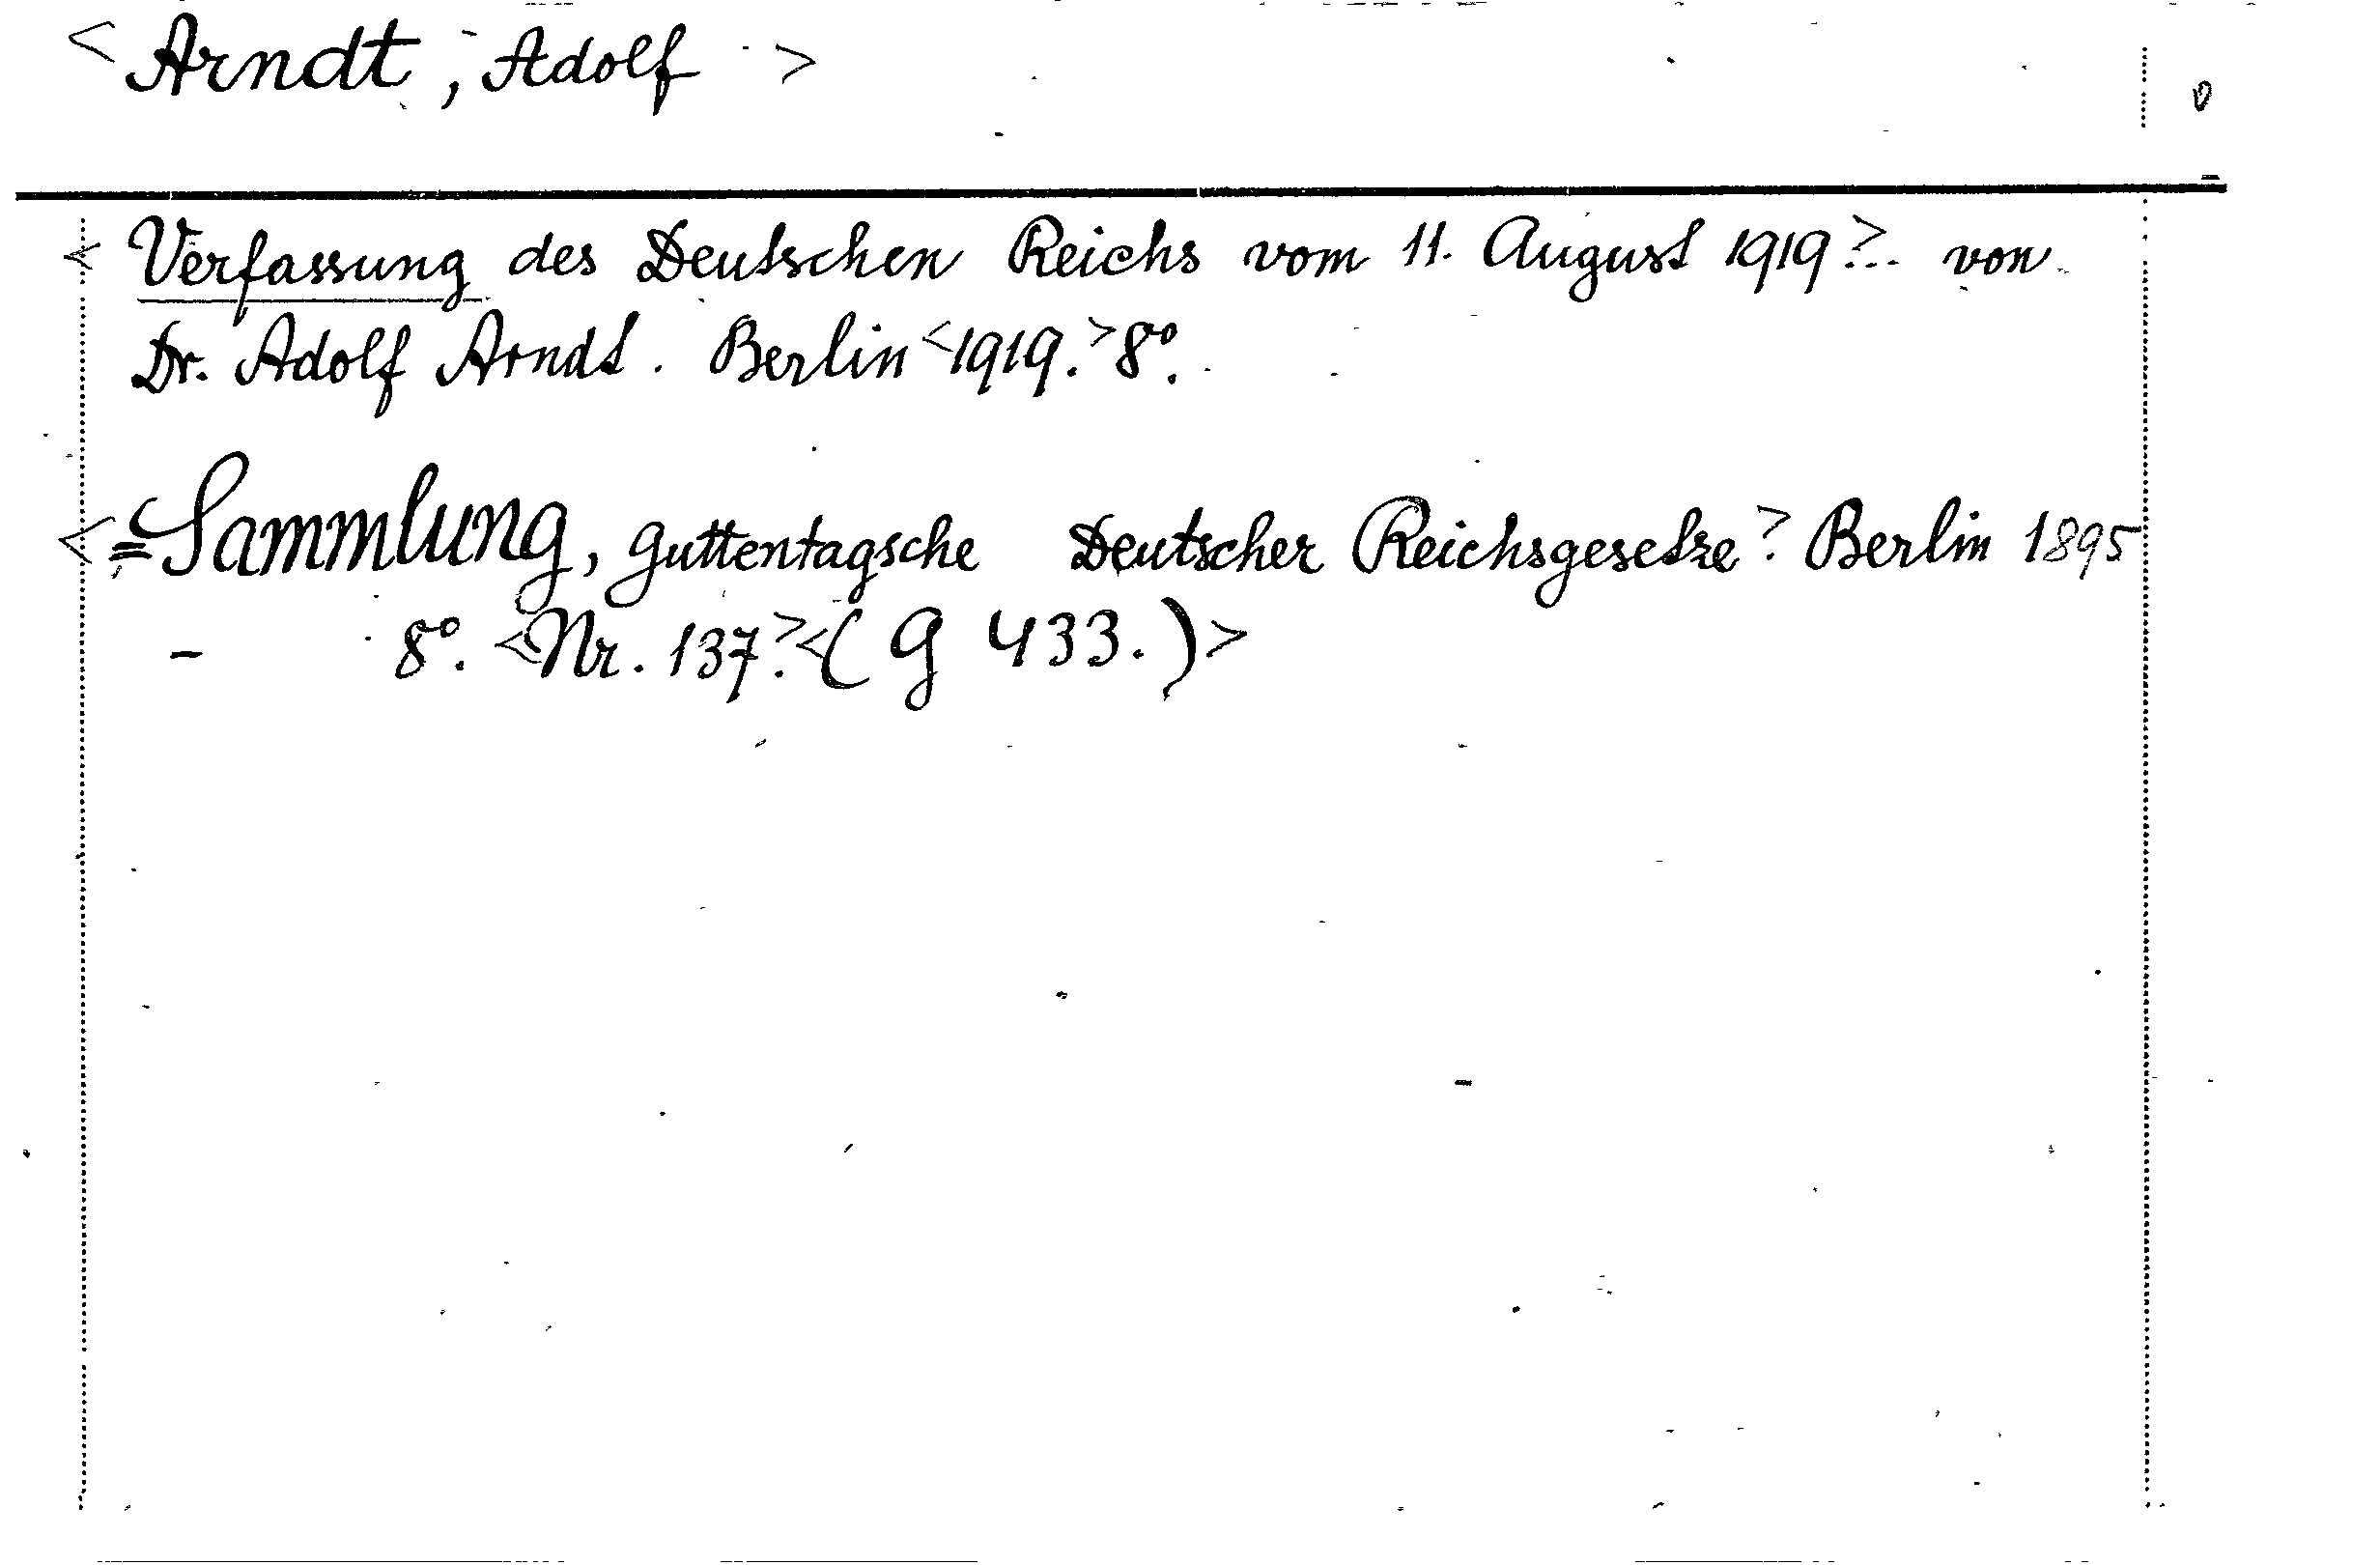 < Arndt, Adolf >
< Verfassung des Deutschen Reichs vom 11. August 1919 >... von
Dr. Adolf Arndt. Berlin < 1919. > 8°.
< = Sammlung, Guttentagsche Deutscher Reichsgesetze. > Berlin 1895
- 8°. < Nr. 137. > < (G 433.) >